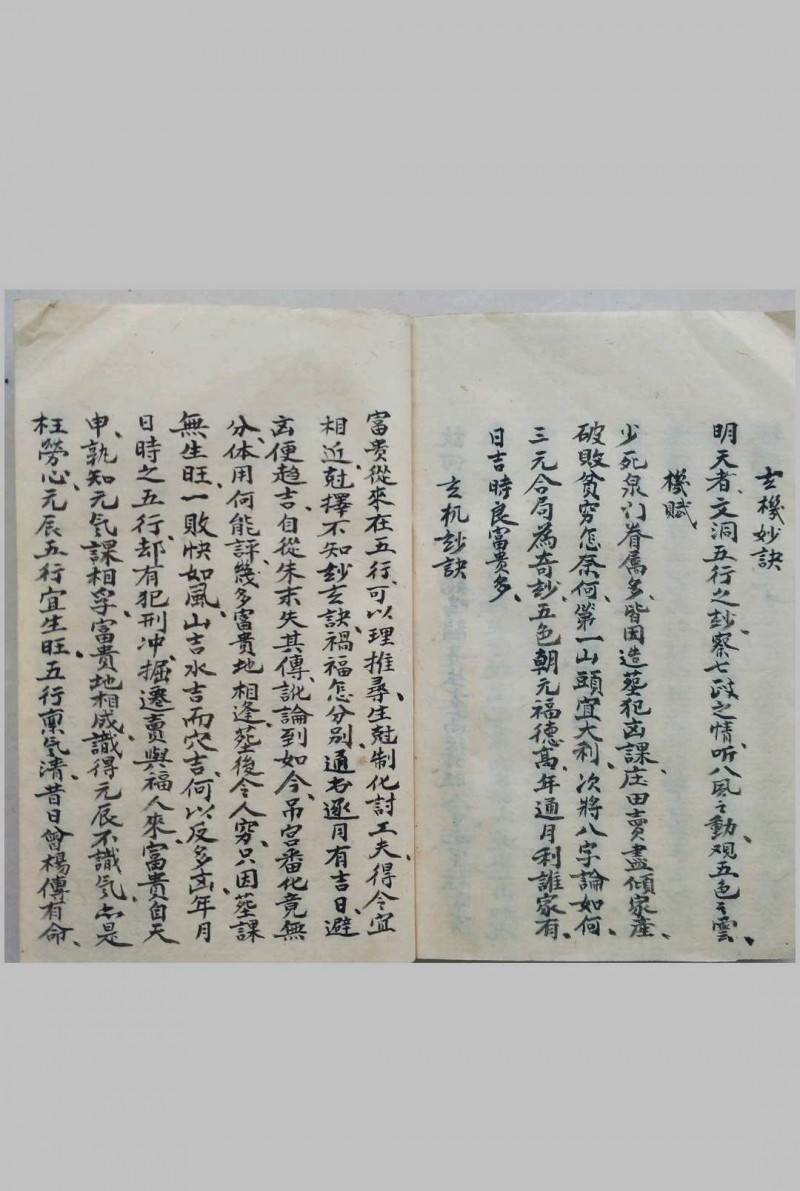 玄機妙訣
明天者、文洞五行之玅、察七政之情、听八風之動、观五色之雲、
機賦、
少死泉门眷属多、皆因造葬犯凶課、庄田賣盡傾家產、
破敗貧穷怎奈何、第一山頭宜大利、次將八字論如何、
三元合局為奇玅、五色朝元福德高、年通月利誰家有、
日吉時良富貴多、
玄机玅訣
富贵從來在五行、可以理推尋、生尅制化討工夫、得令宜
相近、尅擇不知玅玄訣、禍福怎分别、通书逐月有吉日、避
凶便趋吉、自從朱末失其傳、訛論到如今、吊宫番化竟無
分、体用何能評、幾多富貴地相逢、葬後令人穷、只因葬課
無生旺、一敗快如風、山吉水吉而穴吉、何以反多凶、年月
日時之五行、却有犯刑冲、掘遷賣與福人來、富貴自天
申、孰知元气課相孚、富贵地相成、識得元辰不識气、亦是
枉勞心、元辰五行宜生旺、五行禀气清、昔日曾楊傳有命、